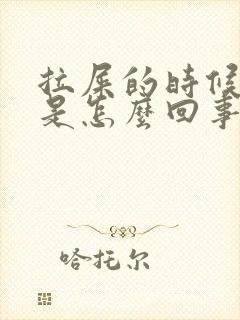 拉屎的时候
是怎麼回事
哈托尔